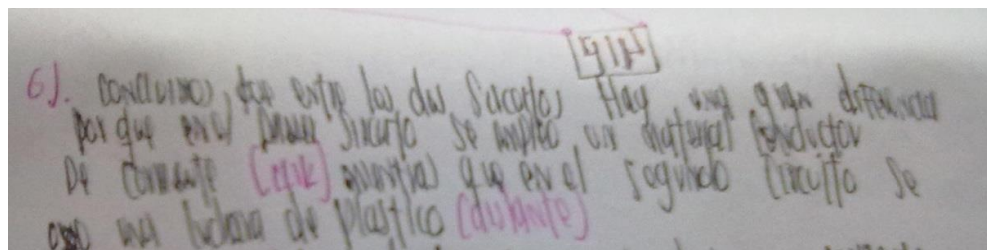 6). Concluimos que entre los dos Sucurtos Hay una gran diferencia
Por que en el primer Sircurto se empleo un material Conductor
De Corriente mientras que en el segundo Circuito se
uso una lamina de Plastico (aislante)